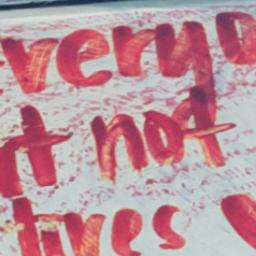 everyo
t not
tives